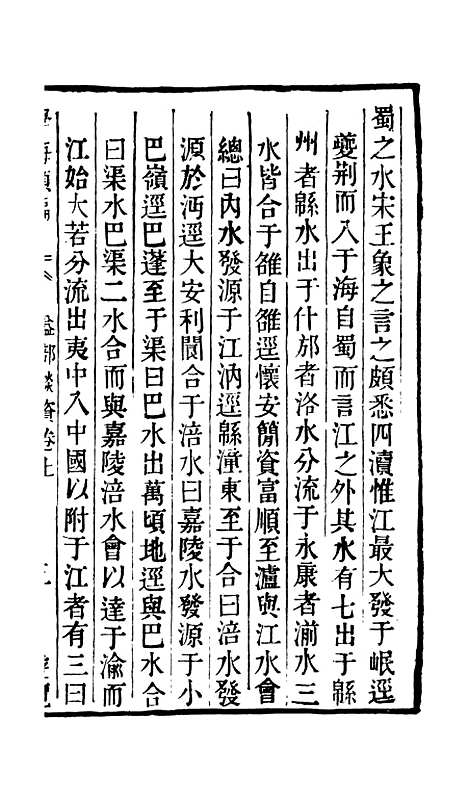 蜀之水宋王象之言之頗悉四瀆惟江最大發于岷逕
夔荆而入于海自蜀而言江之外其水有七出于緜
州者緜水出于什邡者洛水分流于永康者湔水三
水皆合于雒自雒逕懷安簡資富順至瀘與江水會
總曰內水發源于江汭逕緜潼東至于合曰涪水發
源於沔逕大安利閬合于涪水曰嘉陵水發源于小
巴嶺逕巴蓬至于渠曰巴水出萬頃地逕與巴水合
曰渠水巴渠二水合而與嘉陵涪水會以達于渝而
江始大若分流出夷中入中國以附于江者有三曰
益部談資卷上